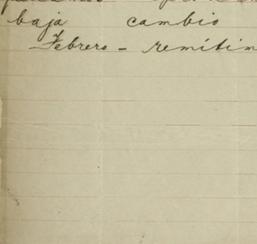 baja cambio
Febrero - remitim